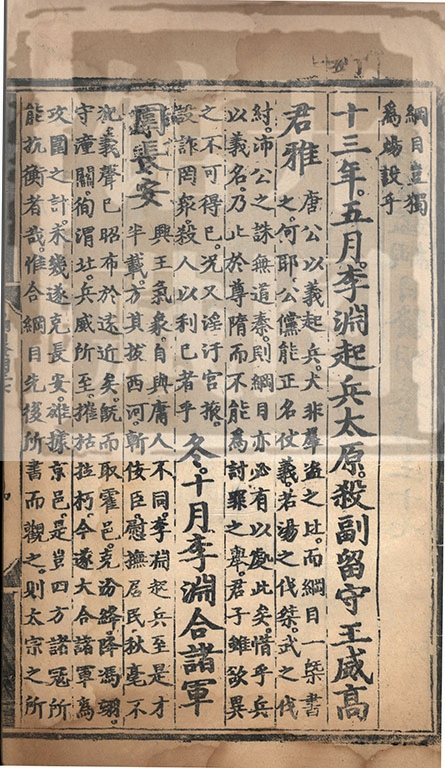 綱目豈獨
為煬設乎
十三年。五月。李淵起兵太原。殺副留守王威高
君雅
唐公以義起兵。大非羣盜之比。而綱目一槩書
之。何耶。公儻能正名仗義。若湯之伐桀。武之伐
紂。沛公之誅無道秦。則綱目亦必有以處此矣。惜乎兵
以義名。乃止於尊隋。而不能為討罪之舉。君子雖欲異
之不可得已。況又淫汙宮掖。
設詐罔衆。殺人以利己者乎
冬。十月李淵合諸軍
圍長安
興王氣象。自與庸人不同。李淵起兵至是才
半載。方其拔西河。斬佞臣。慰撫居民。秋毫不
犯。義聲已昭布於遠近矣。旣而取霍邑。克汾絳。降馮翊。
守潼關。徇渭北。兵威所至。摧枯拉朽。今遂大合諸軍。為
攻圍之計。未幾遂克長安。雄據京邑。是豈四方諸冦所
能抗衡者哉。惟合綱目先後所書而觀之。則太宗之所